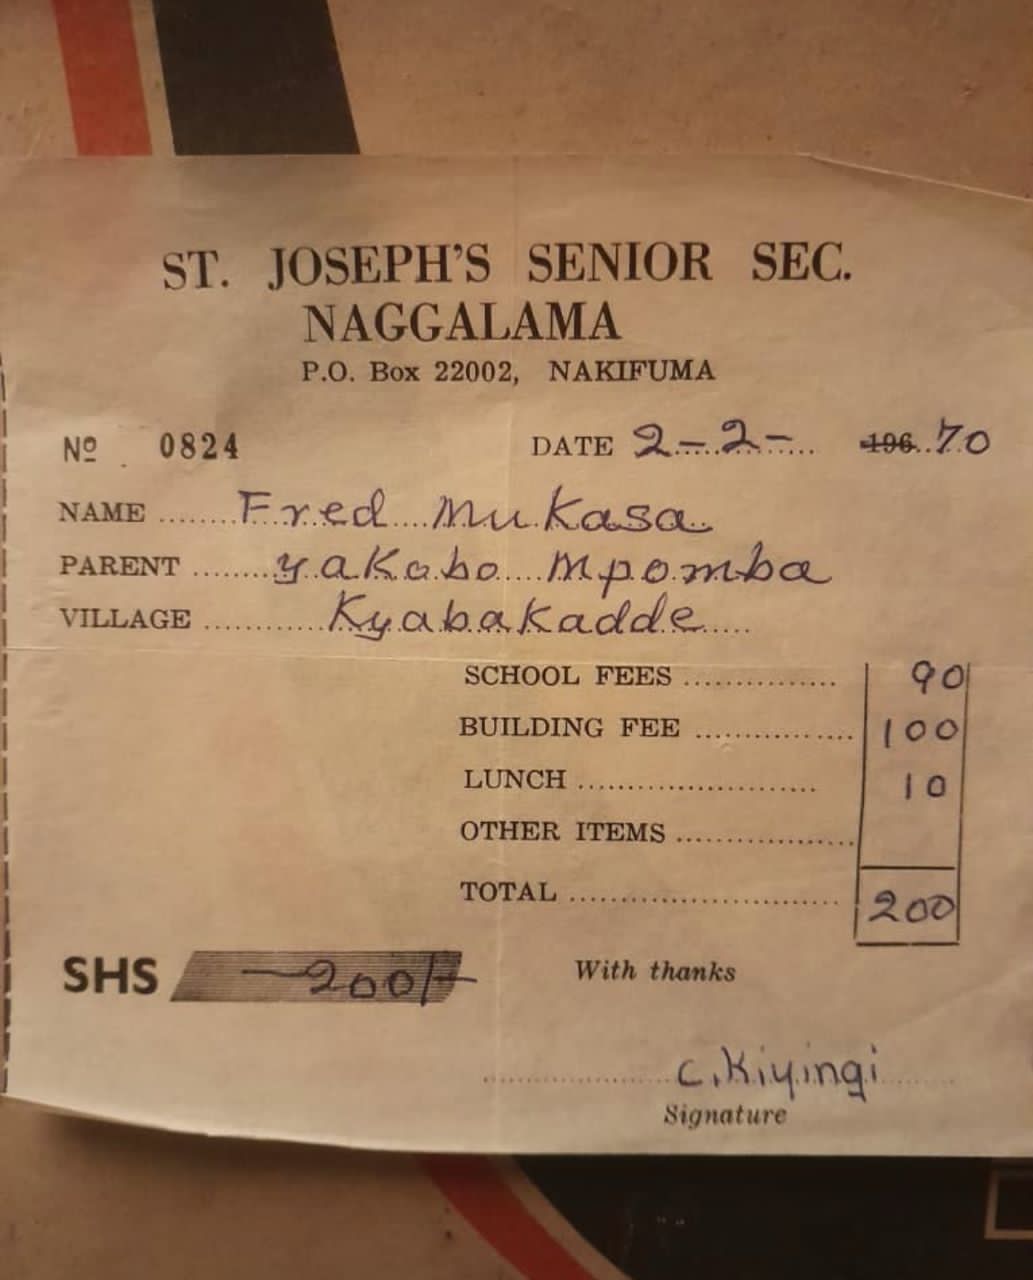 ST. JOSEPH'S SENIOR SEC.
NAGGALAMA
P.O. Box 22002, NAKIFUMA
Nº 0824 DATE 2-2- 196 70
NAME Fred Mukasa
PARENT Yakobo Mpomba
VILLAGE Kyabakadde
SCHOOL FEES 90
BUILDING FEE 100
LUNCH 10
OTHER ITEMS
TOTAL 200
SHS 200/- With thanks
C. Kiyingi
Signature